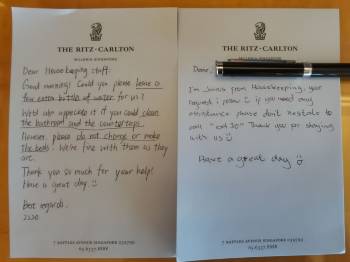 THE RITZ-CARLTON
MILLENIA SINGAPORE
Dear Housekeeping staff:
Good morning! Could you please leave a
few extra bottles of water for us?
We'd also appreciate it if you could clean
the bathroom and the countertops.
However, please do not change or make
the beds. We're fine with them as they
are.
Thank you so much for your help!
Have a great day. :)
Best regards,
2220
7 RAFFLES AVENUE SINGAPORE 039799
65 6337 8888
THE RITZ-CARLTON
MILLENIA SINGAPORE
I'm from Housekeeping, your
request i place :) if you need any
assistance please don't hesitate to
"ext 30" Thank you for staying
with us :)
Have a great day :)
7 RAFFLES AVENUE SINGAPORE 039799
65 6337 8888